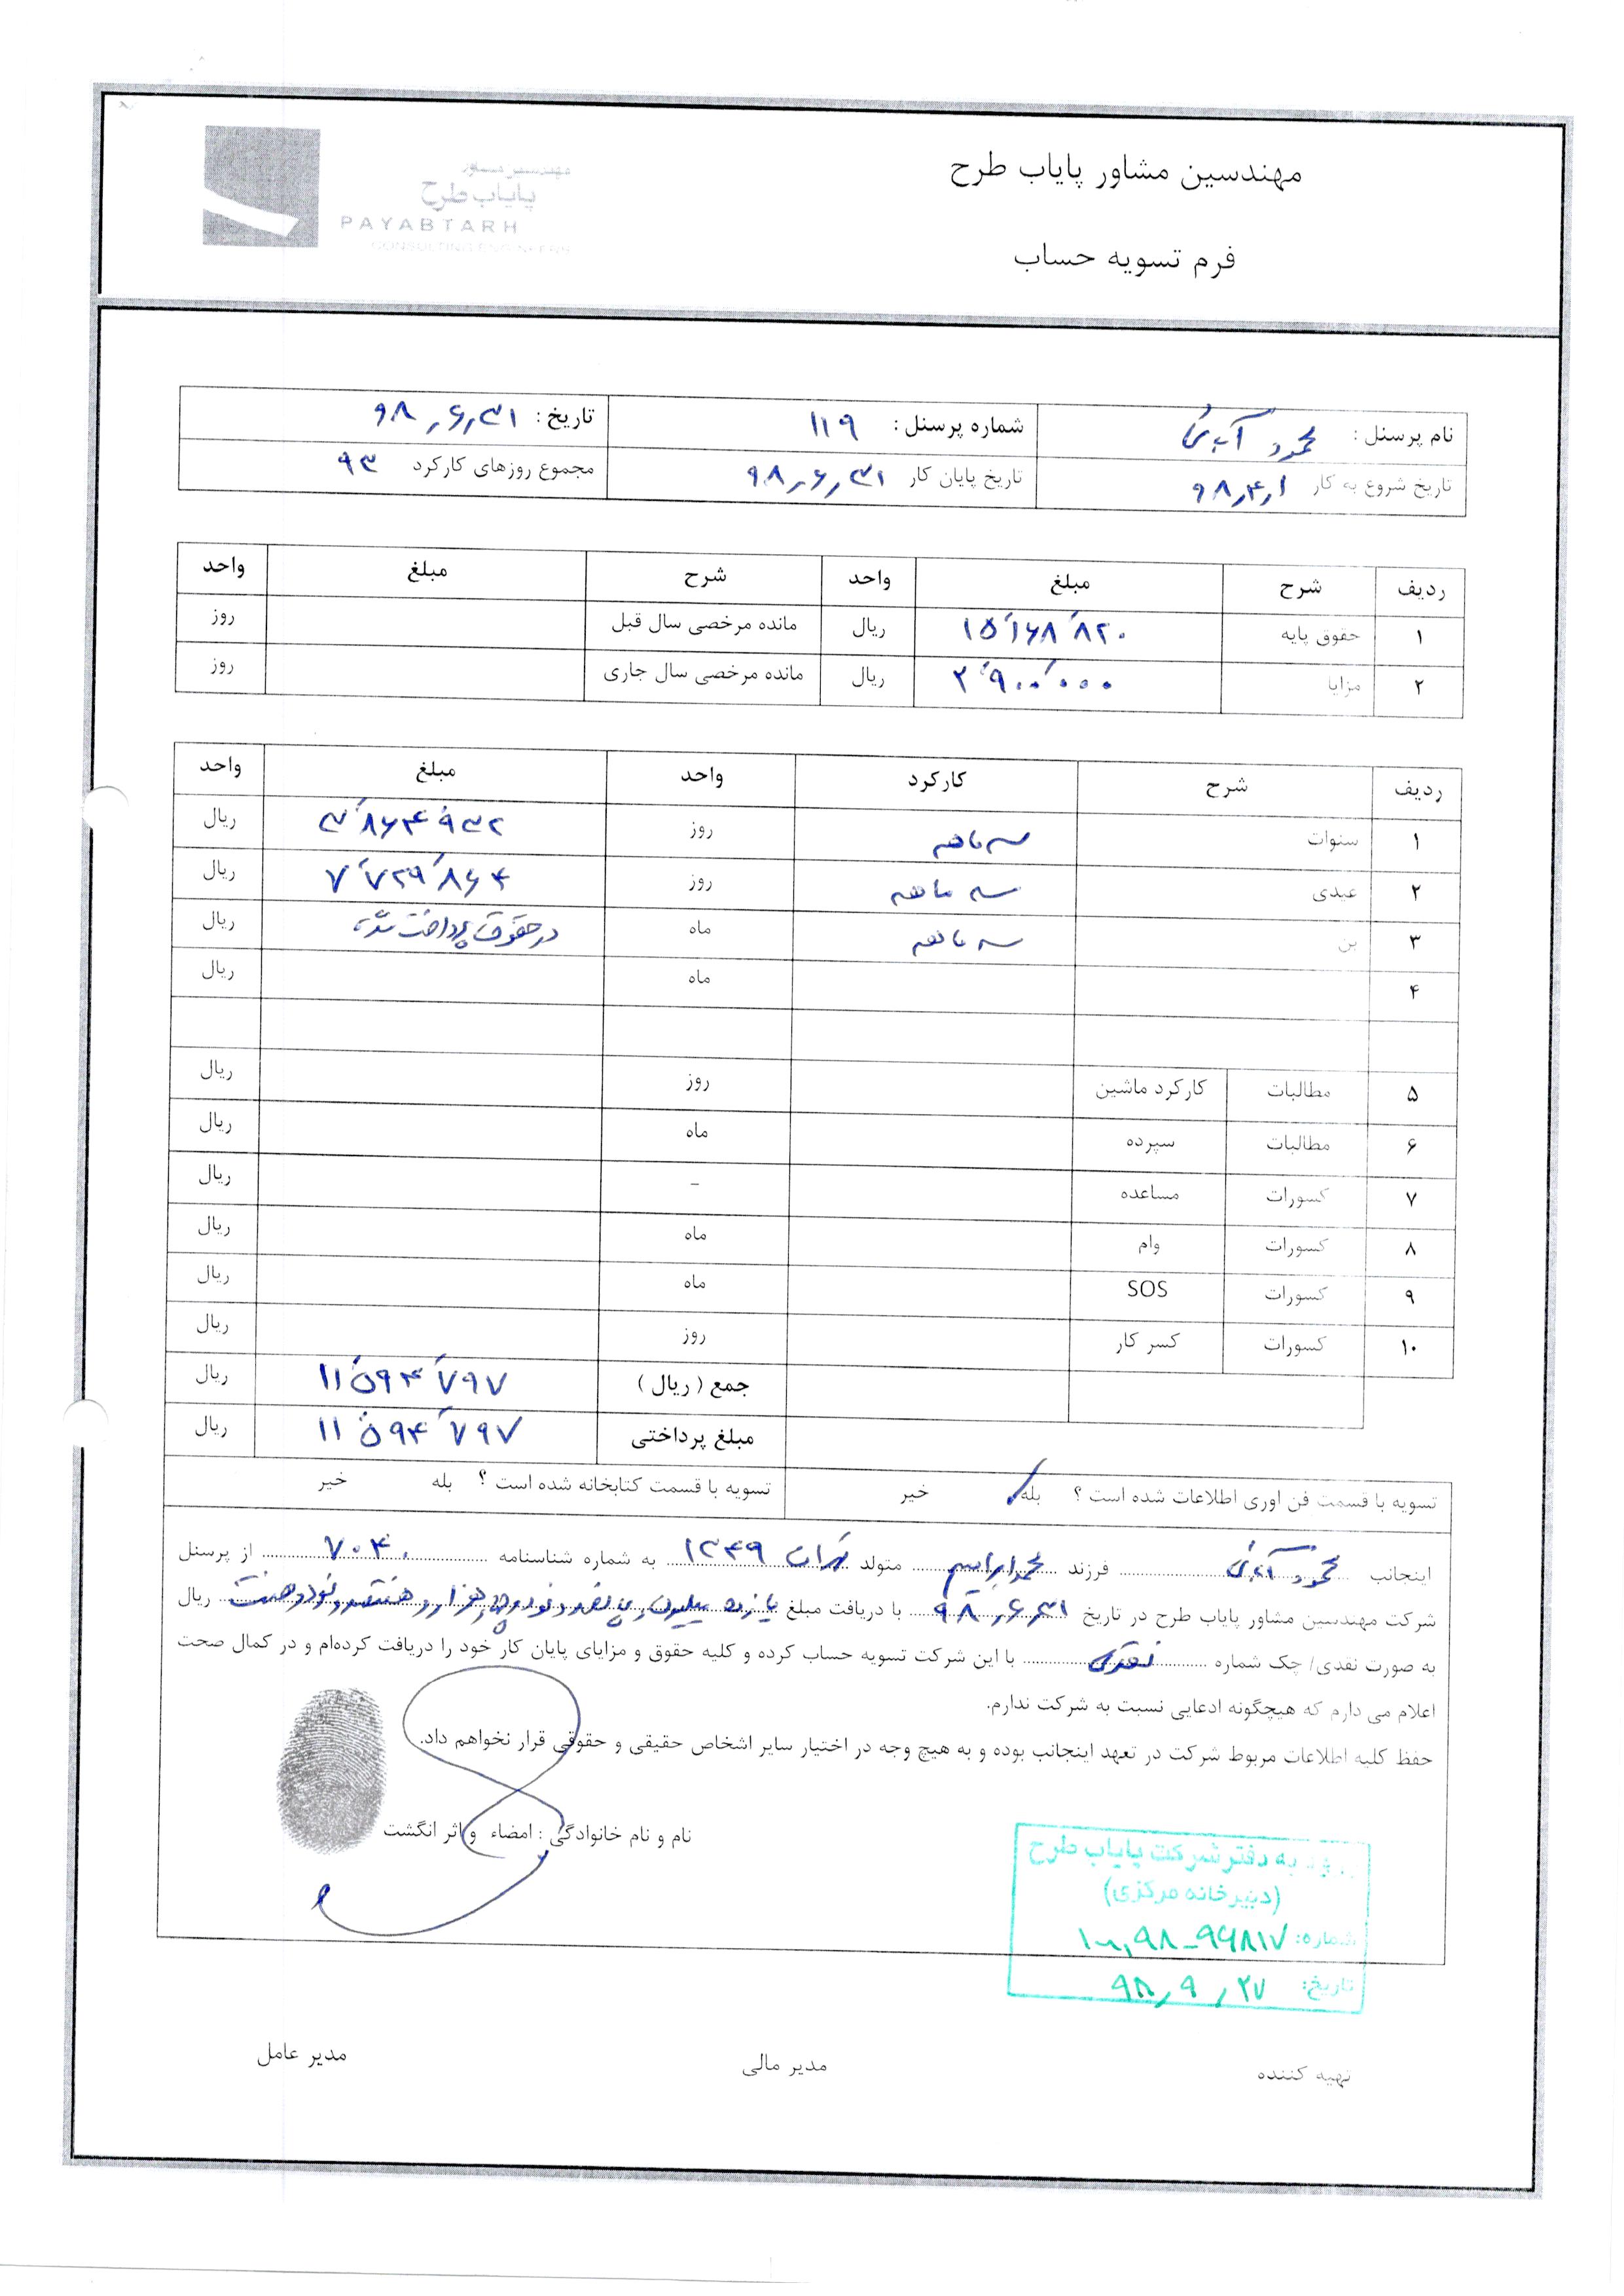 مهندسین مشاور پایاب طرح
فرم تسویه حساب
مهندسین مشاور
پایاب طرح
PAYABTARH
CONSULTING ENGINEERS
نام پرسنل : محمود شماره پرسنل : ۱۱۹ تاریخ : ۹۸,۶,۳۱
تاریخ شروع به کار ۹۸,۴,۱ تاریخ پایان کار ۹۸,۶,۳۱ مجموع روزهای کارکرد ۹۳
ردیف شرح مبلغ واحد شرح مبلغ واحد
۱ حقوق پایه ۱۵٬۱۶۸٬۸۲۰ ریال مانده مرخصی سال قبل روز
۲ مزایا ۲٬۹۰۰٬۰۰۰ ریال مانده مرخصی سال جاری روز
ردیف شرح کارکرد واحد مبلغ واحد
۱ سنوات سه ماهه روز ۳٬۸۶۴٬۹۳۲ ریال
۲ عیدی سه ماهه روز ۷٬۷۲۹٬۸۶۴ ریال
۳ بن سه ماهه ماه در حقوق پرداخت شده ریال
۴ ماه ریال
۵ مطالبات کارکرد ماشین روز ریال
۶ مطالبات سپرده ماه ریال
۷ کسورات مساعده - ریال
۸ کسورات وام ماه ریال
۹ کسورات SOS ماه ریال
۱۰ کسورات کسر کار روز ریال
جمع ( ریال ) ۱۱٬۵۹۴٬۷۹۷ ریال
مبلغ پرداختی ۱۱٬۵۹۴٬۷۹۷ ریال
تسویه با قسمت فن اوری اطلاعات شده است ؟ بله خیر تسویه با قسمت کتابخانه شده است ؟ بله خیر
اینجانب محمود فرزند محمدابراهیم متولد تهران ۱۳۴۹ به شماره شناسنامه ۷۰۴۰ از پرسنل
شرکت مهندسین مشاور پایاب طرح در تاریخ ۹۸,۶,۳۱ با دریافت مبلغ یازده میلیون و پانصد و نود و چهار هزار و هفتصد و نود و هفت ریال
به صورت نقدی/ چک شماره نقدی با این شرکت تسویه حساب کرده و کلیه حقوق و مزایای پایان کار خود را دریافت کرده‌ام و در کمال صحت
اعلام می دارم که هیچگونه ادعایی نسبت به شرکت ندارم.
حفظ کلیه اطلاعات مربوط شرکت در تعهد اینجانب بوده و به هیچ وجه در اختیار سایر اشخاص حقیقی و حقوقی قرار نخواهم داد.
نام و نام خانوادگی : امضاء و اثر انگشت
به دفتر شرکت پایاب طرح
(دبیرخانه مرکزی)
شماره: ۹۸-۹۹۸۱۷
تاریخ: ۹۸,۹,۲۷
تهیه کننده مدیر مالی مدیر عامل